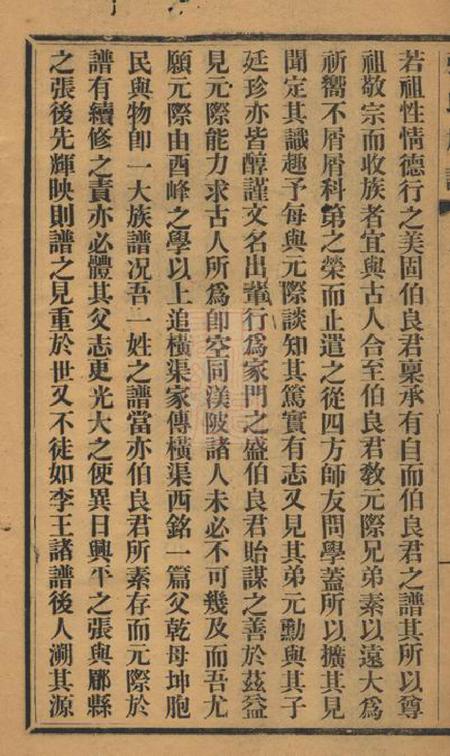 若祖性情德行之美固伯良君稟承有自而伯良君之譜其所以尊
祖敬宗而收族者宜與古人合至伯良君敎元際兄弟素以遠大爲
祈嚮不屑屑科第之榮而止遣之從四方師友問學蓋所以擴其見
聞定其識趣予每與元際談知其篤實有志又見其弟元勳與其子
廷珍亦皆醇謹文名出輩行爲家門之盛伯良君貽謀之善於茲益
見元際能力求古人所爲卽空同渼陂諸人未必不可幾及而吾尤
願元際由酉峰之學以上追橫渠家傳橫渠西銘一篇父乾母坤胞
民與物卽一大族譜况吾一姓之譜當亦伯良君所素存而元際於
譜有續修之責亦必體其父志更光大之使異日興平之張與郿縣
之張後先輝映則譜之見重於世又不徒如李王諸譜後人溯其源